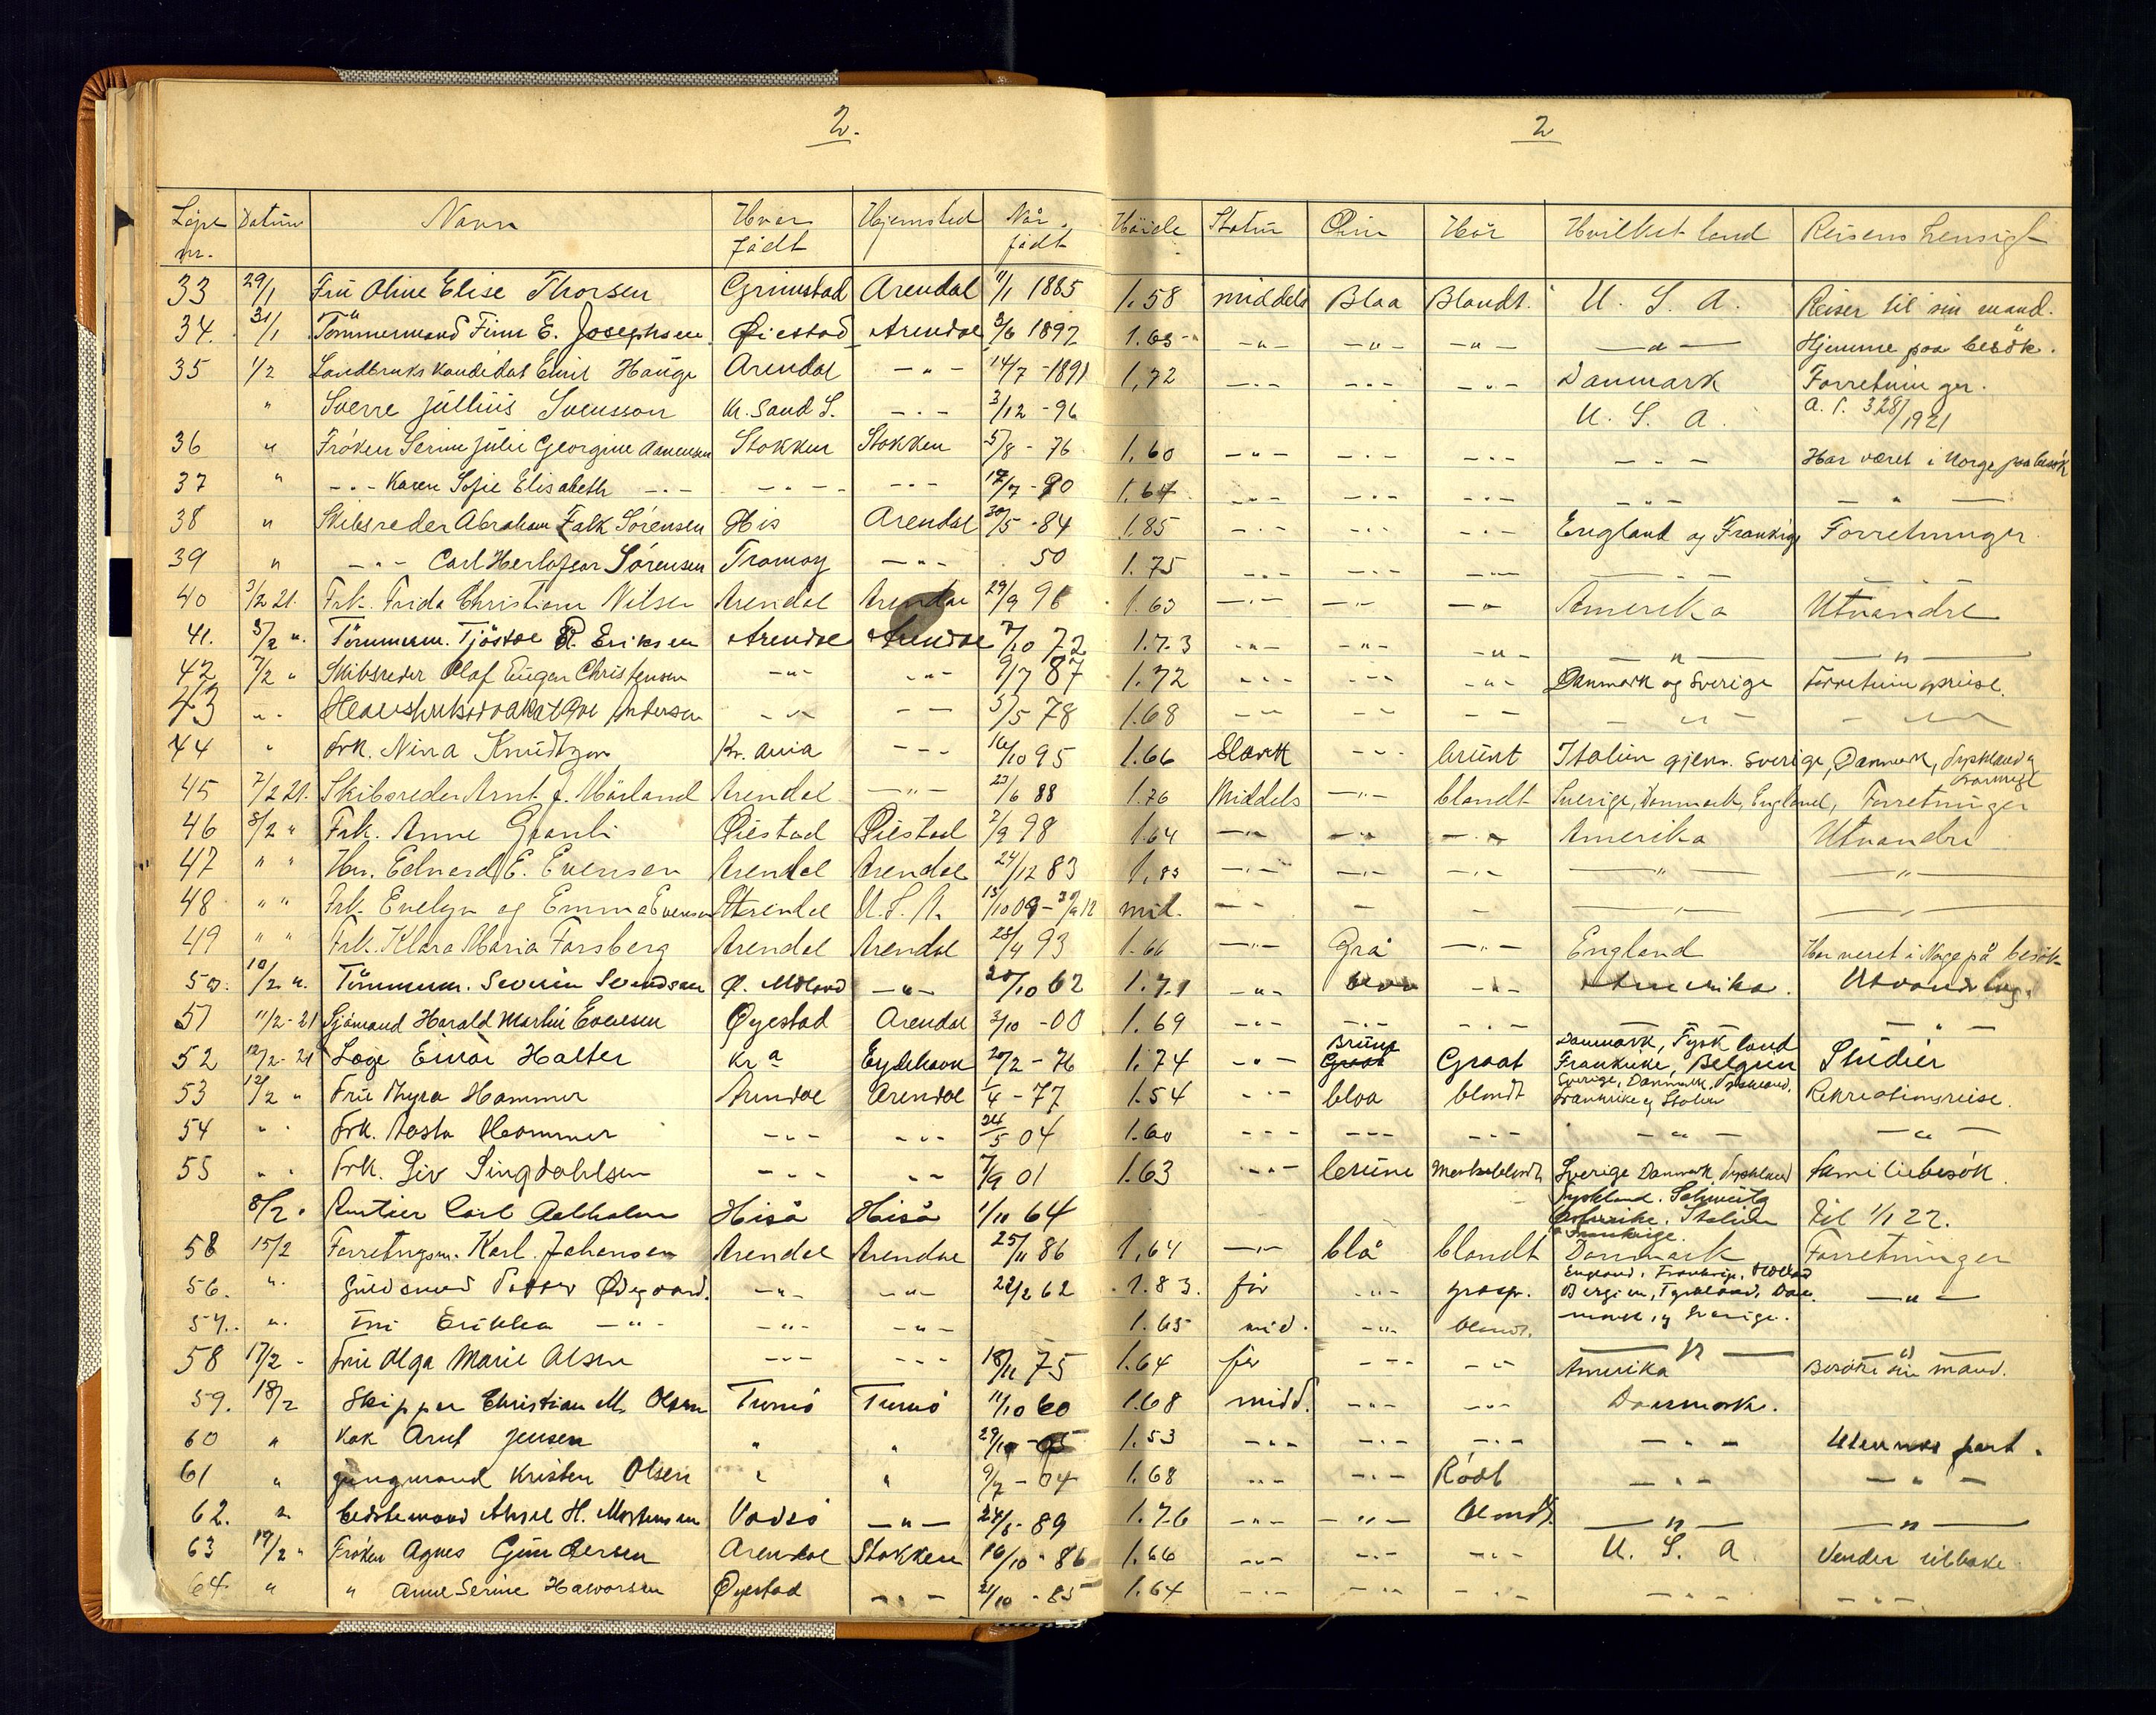 2.
2
Løpe nr. Datum Navn Hvor født Hjemsted Når født Høide Statur Øine Hår Hvilket land Reisens hensigt
33 29/1 Frü Oline Elise Thorsen Grimstad Arendal 11/1 1885 1.58 middels Blaa Blondt. U. S. A. Reiser til sin mand.
34. 31/1 Tømmermand Finn E. Josephsen Øiestad Arendal 3/6 1892 1.63 -"- -"- -"- -"- Hjemme paa besök.
35 1/2 Landbrukskandidat Emil Hauge Arendal -"- 14/7 - 1891 1,72 -"- -"- -"- Danmark Forretninger.
" Sverre Jullius Svensson Kr. Sand S. -"- 3/12 - 96 U. S. A. a. s. 328/1921
36 " Frøken Serine Julie Georgine Aanensen Stokken Stokken 5/8 - 76 1.60 -"- -"- -"- -"- Har været i Norge paa besøk
37 " -"- Karen Sofie Elisabeth -"- -"- -"- 17/7 - 90 1.64 -"- -"- -"- -"- -"-
38 " Skibsreder Abraham Falk Sørensen His Arendal 30/5 - 84 1.85 -"- -"- -"- England og Frankrig Forretninger
39 " -"- Carl Herlofson Sørensen Tromøy -"- 50 1.75 -"- -"- -"- -"- -"-
40 3/2 21. Frk. Frida Christiane Nilsen Arendal Arendal 29/9 96 1.63 -"- -"- -"- Amerika Utvandre
41. 5/2 ". Tømmerm. Tjöstol R. Eriksen Arendal Arendal 7/10 72 1.73 -"- -"- -"- -"- -"-
42 7/2 " Skibsreder Olaf Eugen Christensen -"- -"- 9/7 87 1.72 -"- -"- -"- Danmark og Sverige Forretningsreise.
43 " " Andersen -"- -"- 5/5 78 1.68 -"- -"- -"- -"- -"-
44 " Frk. Nina Knudtzon Kr. ania -"- 16/10 95 1.66 Slank -"- brünt Italien gjen. Sverige, Danmark, Tyskland og Frankrige
45 7/2 21. Skibsreder Arnt J. Mørland Arendal -"- 23/6 88 1.76 Middels -"- blondt Sverige, Danmark, England, Forretninger
46 8/2 " Frk. Anne Granli Øiestad Øiestad 2/9 98 1.64 -"- -"- -"- Amerika Utvandre
47 " " Hr. Edvard E. Evensen Arendal Arendal 24/12 83 1,83 -"- -"- -"- -"- -"-
48 " " Frk. Evelyn og Emma Evensen Arendal U.S.A. 13/10 09 - 30/9 12 mid. -"- - - -"- -"-
49 " " Frk. Klara Maria Forsberg Arendal Arendal 28/4 93 1.66 -"- Grå -"- England Har været i Norge på besök
50. 10/2 ". Tømmerm. Severin Svendsen Ø. Moland -"- 20/10 62 1.71 -"- -"- Amerika. Utvandring.
51 11/2 - 21 Sjömand Harald Martin Evensen Øyestad Arendal 3/10 - 00 1.69 -"- -"- -"- -"- -"-
52 12/2 - 21 Læge Einar Halter Kr a Eydehavn 20/2 - 76 1.74 -"- Brüne Graat Danmark, Tyskland Frankrike, Belgien Studier
53 12/2 " Frü Thyra Hammer Arendal Arendal 1/4 - 77 1.54 -"- blaa blondt Sverige, Danmark, Tyskland, Frankrike og Italien Rekreationsreise.
54 " " Frk. Aasta Hammer -"- -"- 24/5 04 1.60 -"- -"- -"- -"- -"-
55 " " Frk. Liv Lingdahlsen -"- -"- 7/9 01 1.63 -"- brüne Mørkeblondt Sverige Danmark, Tyskland familiebesök
8/2 " Rentier Carl Aalholm Hisö Hisö 1/10 64 Tyskland. Schweitz Østerrike. Italien og Frankrige. til 1/1 22.
58 15/2 Forretngsm. Karl Johansen Arendal Arendal 25/11 86 1.64 -"- blå blondt Danmark Forretninger
56. " Guldsmed Peder Ødegaard. -"- -"- 22/2 62 1.83. før -"- graaspr. England, Frankrig, Holland Belgien, Tyskland, Dan- -"-
57. " Fru Erikka -"- -"- -"- 1.65 mid. -"- blond. mark, og Sverige. -"-
58 17/2 - Frü Olga Marie Olsen -"- -"- 18/11 75 1.64 før -"- -"- Amerika Besöke sin mand.
59. 18/2 Skipper Christian M. Olsen Tromö Tromö 11/10 60 1.68 midd. -"- -"- Danmark.
60 " Kok Arnt Jensen " " 29/10 - 05 1.53 -"- -"- -"- -"- Utenriks fart.
61 " Jungmand Kristen Olsen " " 9/7 - 04 1.68 -"- -"- Rödt -"- -"-
62. " Bedstemand Aksel H. Mortensen Vadsö -"- 24/6 - 89 1.76 -"- -"- blondt -"- -"-
63 19/2 " Frøken Agnes Gundersen Arendal Stokken 16/10 - 86 1.66 -"- -"- -"- U. S. A. Vender tilbake
64 " " Anne Serine Halvorsen Øyestad -"- 21/10 - 85 1.64 -"- -"- -"- -"- -"-